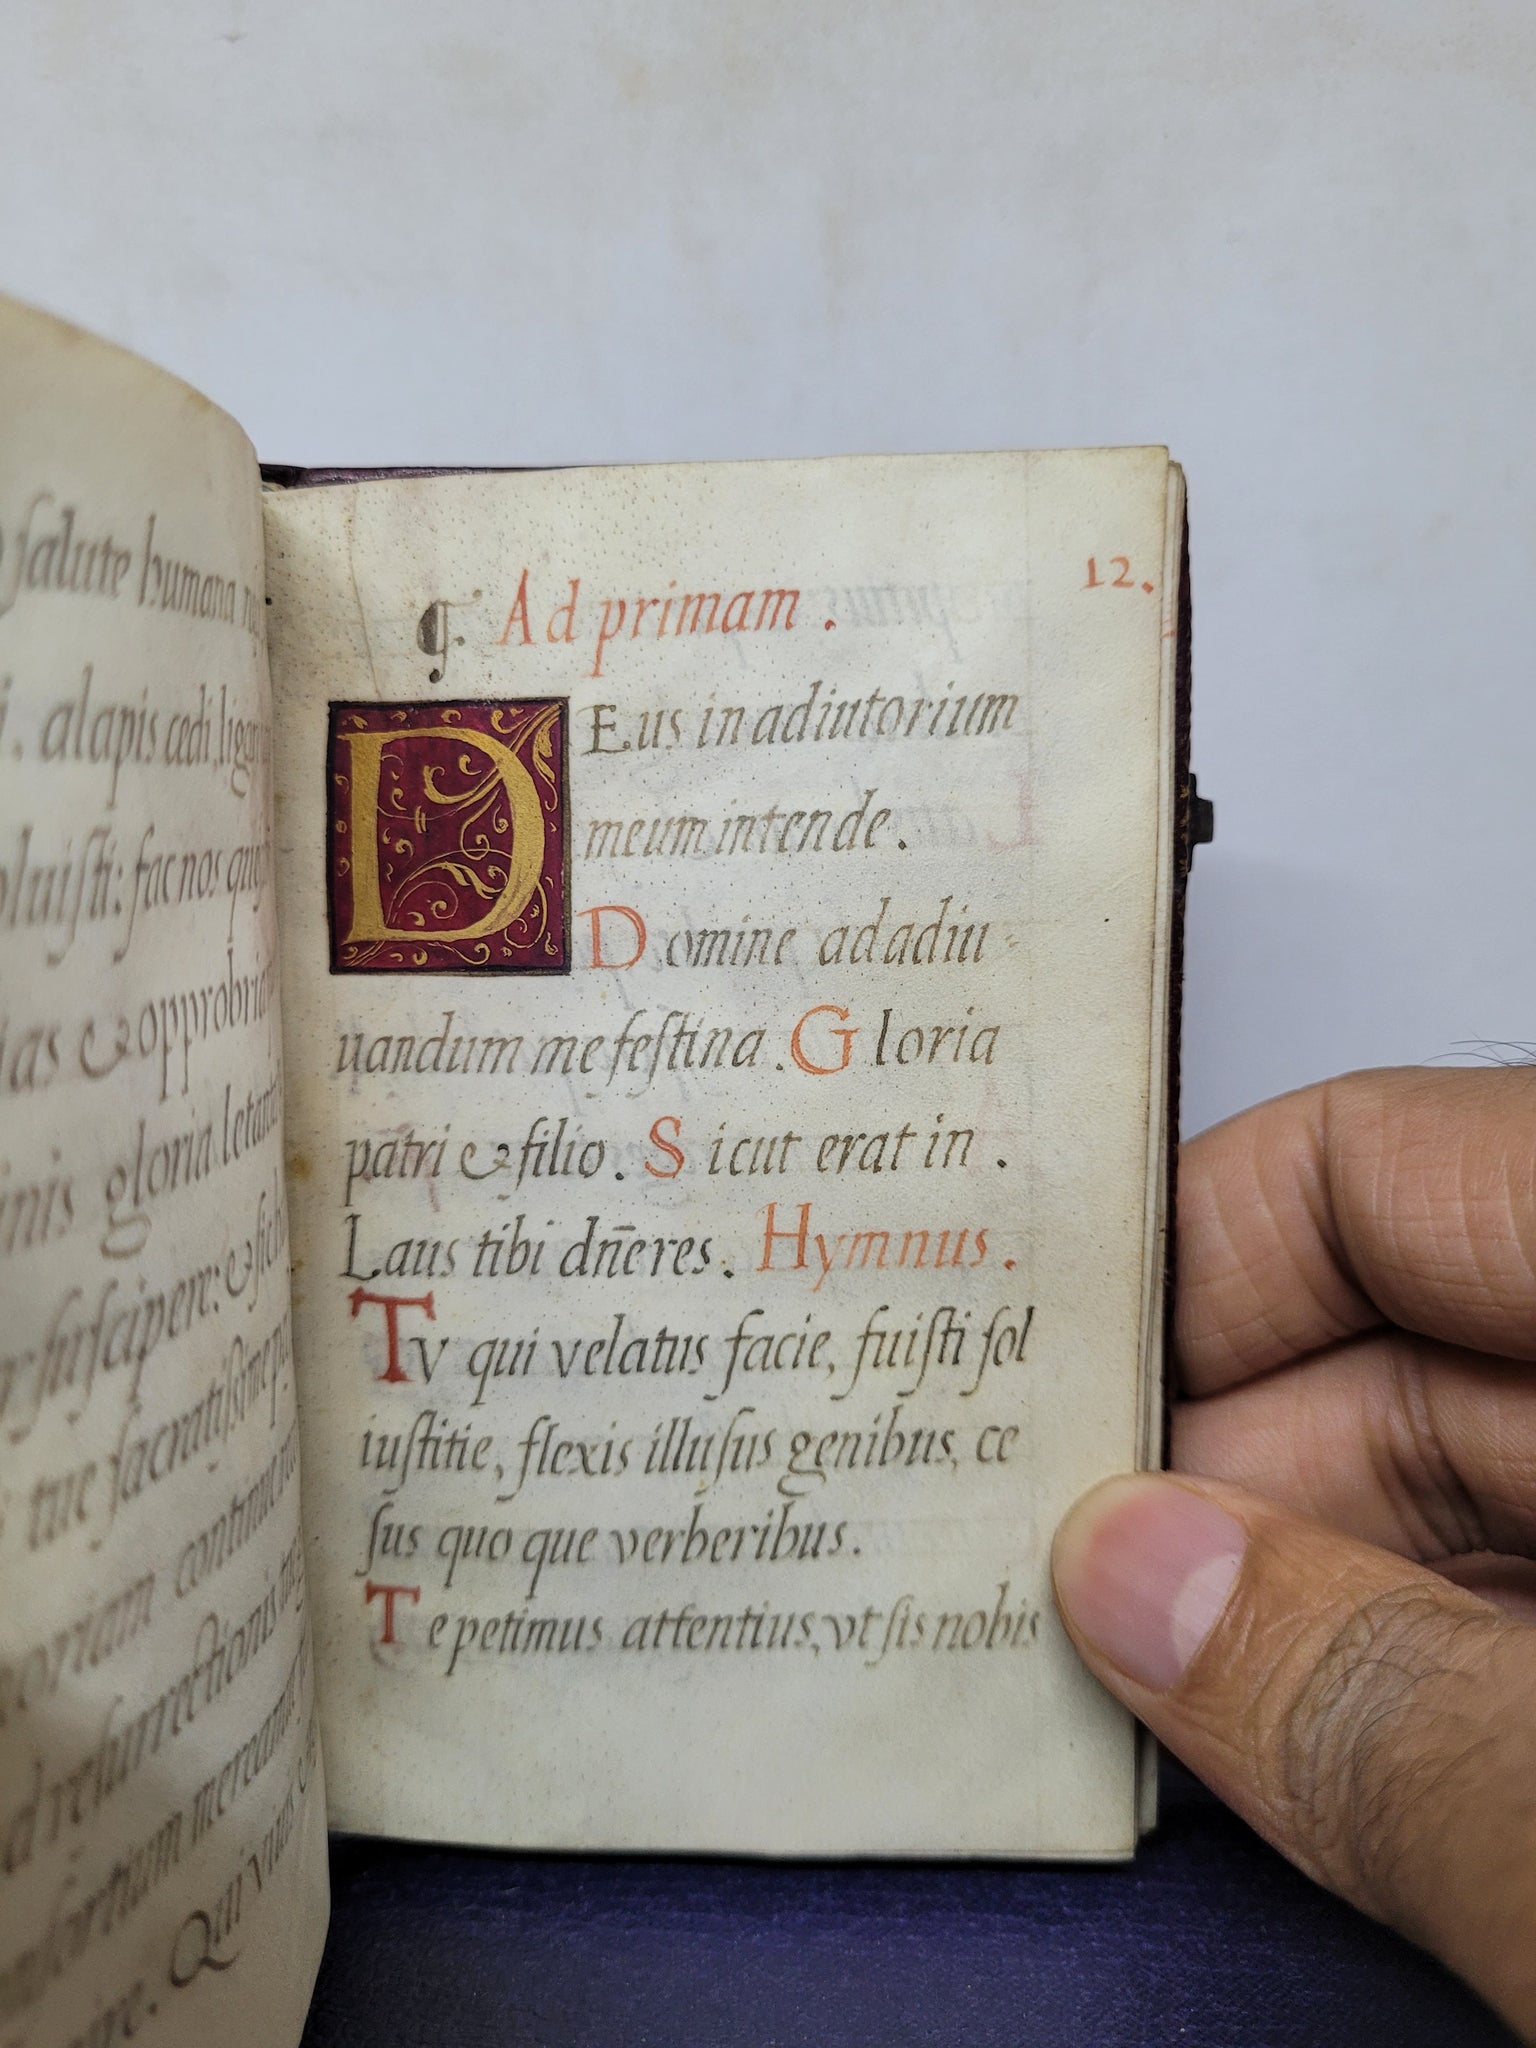 salute humana
alapis cedi, liga
luisti: fac nos que
ias & opprobria
inis gloria letant
suscipere: & sic
tue sacratissime
continue
resurrectionis
consortium mereamur
Qui viuis
12.
¶. Ad primam.
DEus in adiutorium
meum intende.
Domine ad adiu-
uandum me festina. Gloria
patri & filio. Sicut erat in.
Laus tibi dn̄e res. Hymnus.
Tv qui velatus facie, fuisti sol
iustitie, flexis illusus genibus, ce
sus quo que verberibus.
Te petimus attentius, vt sis nobis